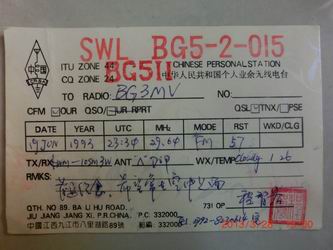 SWL BG5-2-015
ITU ZONE 44
CHINESE PERSONAL STATION
CQ ZONE 24
BG5II
中华人民共和国个人业余无线电台
TO RADIO: BG3MV
NO:
CFM □OUR □QSO/□UR RPRT
QSL □TNX/□PSE
DATE UTC MHz MODE RST WKD/CLG
19 JUN 1993 23:34 29.64 FM 57
TX/RX ANT DIP WX/TEMP Cloudy 26
73! OP
QTH. NO 89. BA LI HU ROAD,
JIU JIANG JIANG XI. P.R.CHINA. P.C: 332000
中国江西九江市八里湖路89号 332000